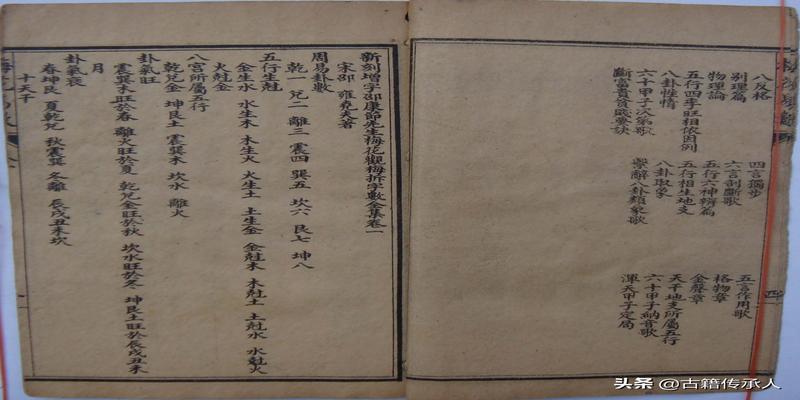 八反格 四言獨步 五言作用歌
别理篇 六言剖斷歌 格物章
物理論 五行六神辨篇 金聲章
五行四季旺相依因例 五行相生地支 天干地支所屬五行
八卦性情 八卦取象 六十甲子納音歌
六十甲子次第歌 繫辭八卦類象歌 渾天甲子定局
斷富貴貧賤要訣
新刻增字邵康節先生梅花觀梅拆字數全集卷一
宋邵 雍堯夫著
周易卦數
乾一 兌二 離三 震四 巽五 坎六 艮七 坤八
五行生尅
金生水 水生木 木生火 火生土 土生金 金尅木 木尅土 土尅水 水尅火
火尅金
八宮所屬五行
乾兌金 坤艮土 震巽木 坎水 離火
卦氣旺
震巽木旺於春 離火旺於夏 乾兌金旺於秋 坎水旺於冬 坤艮土旺於辰戌丑未
月
卦氣衰
春坤艮 夏乾兌 秋震巽 冬離 辰戌丑未坎
十天干
头条 @古籍传承人